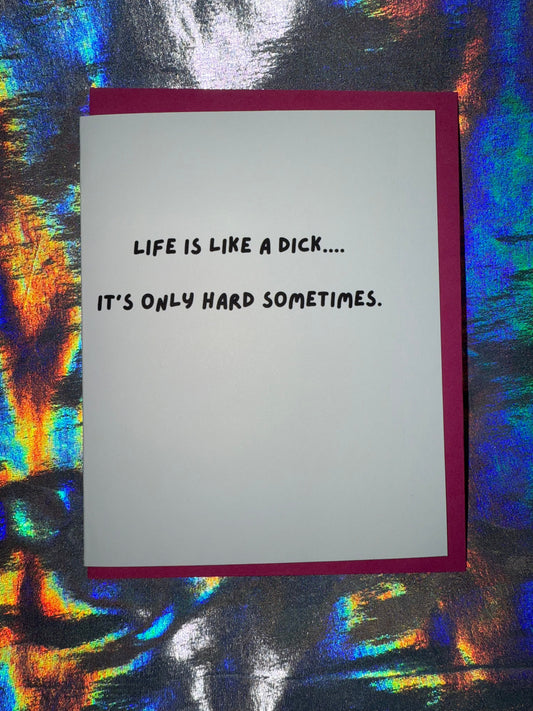 LIFE IS LIKE A DICK....
IT'S ONLY HARD SOMETIMES.